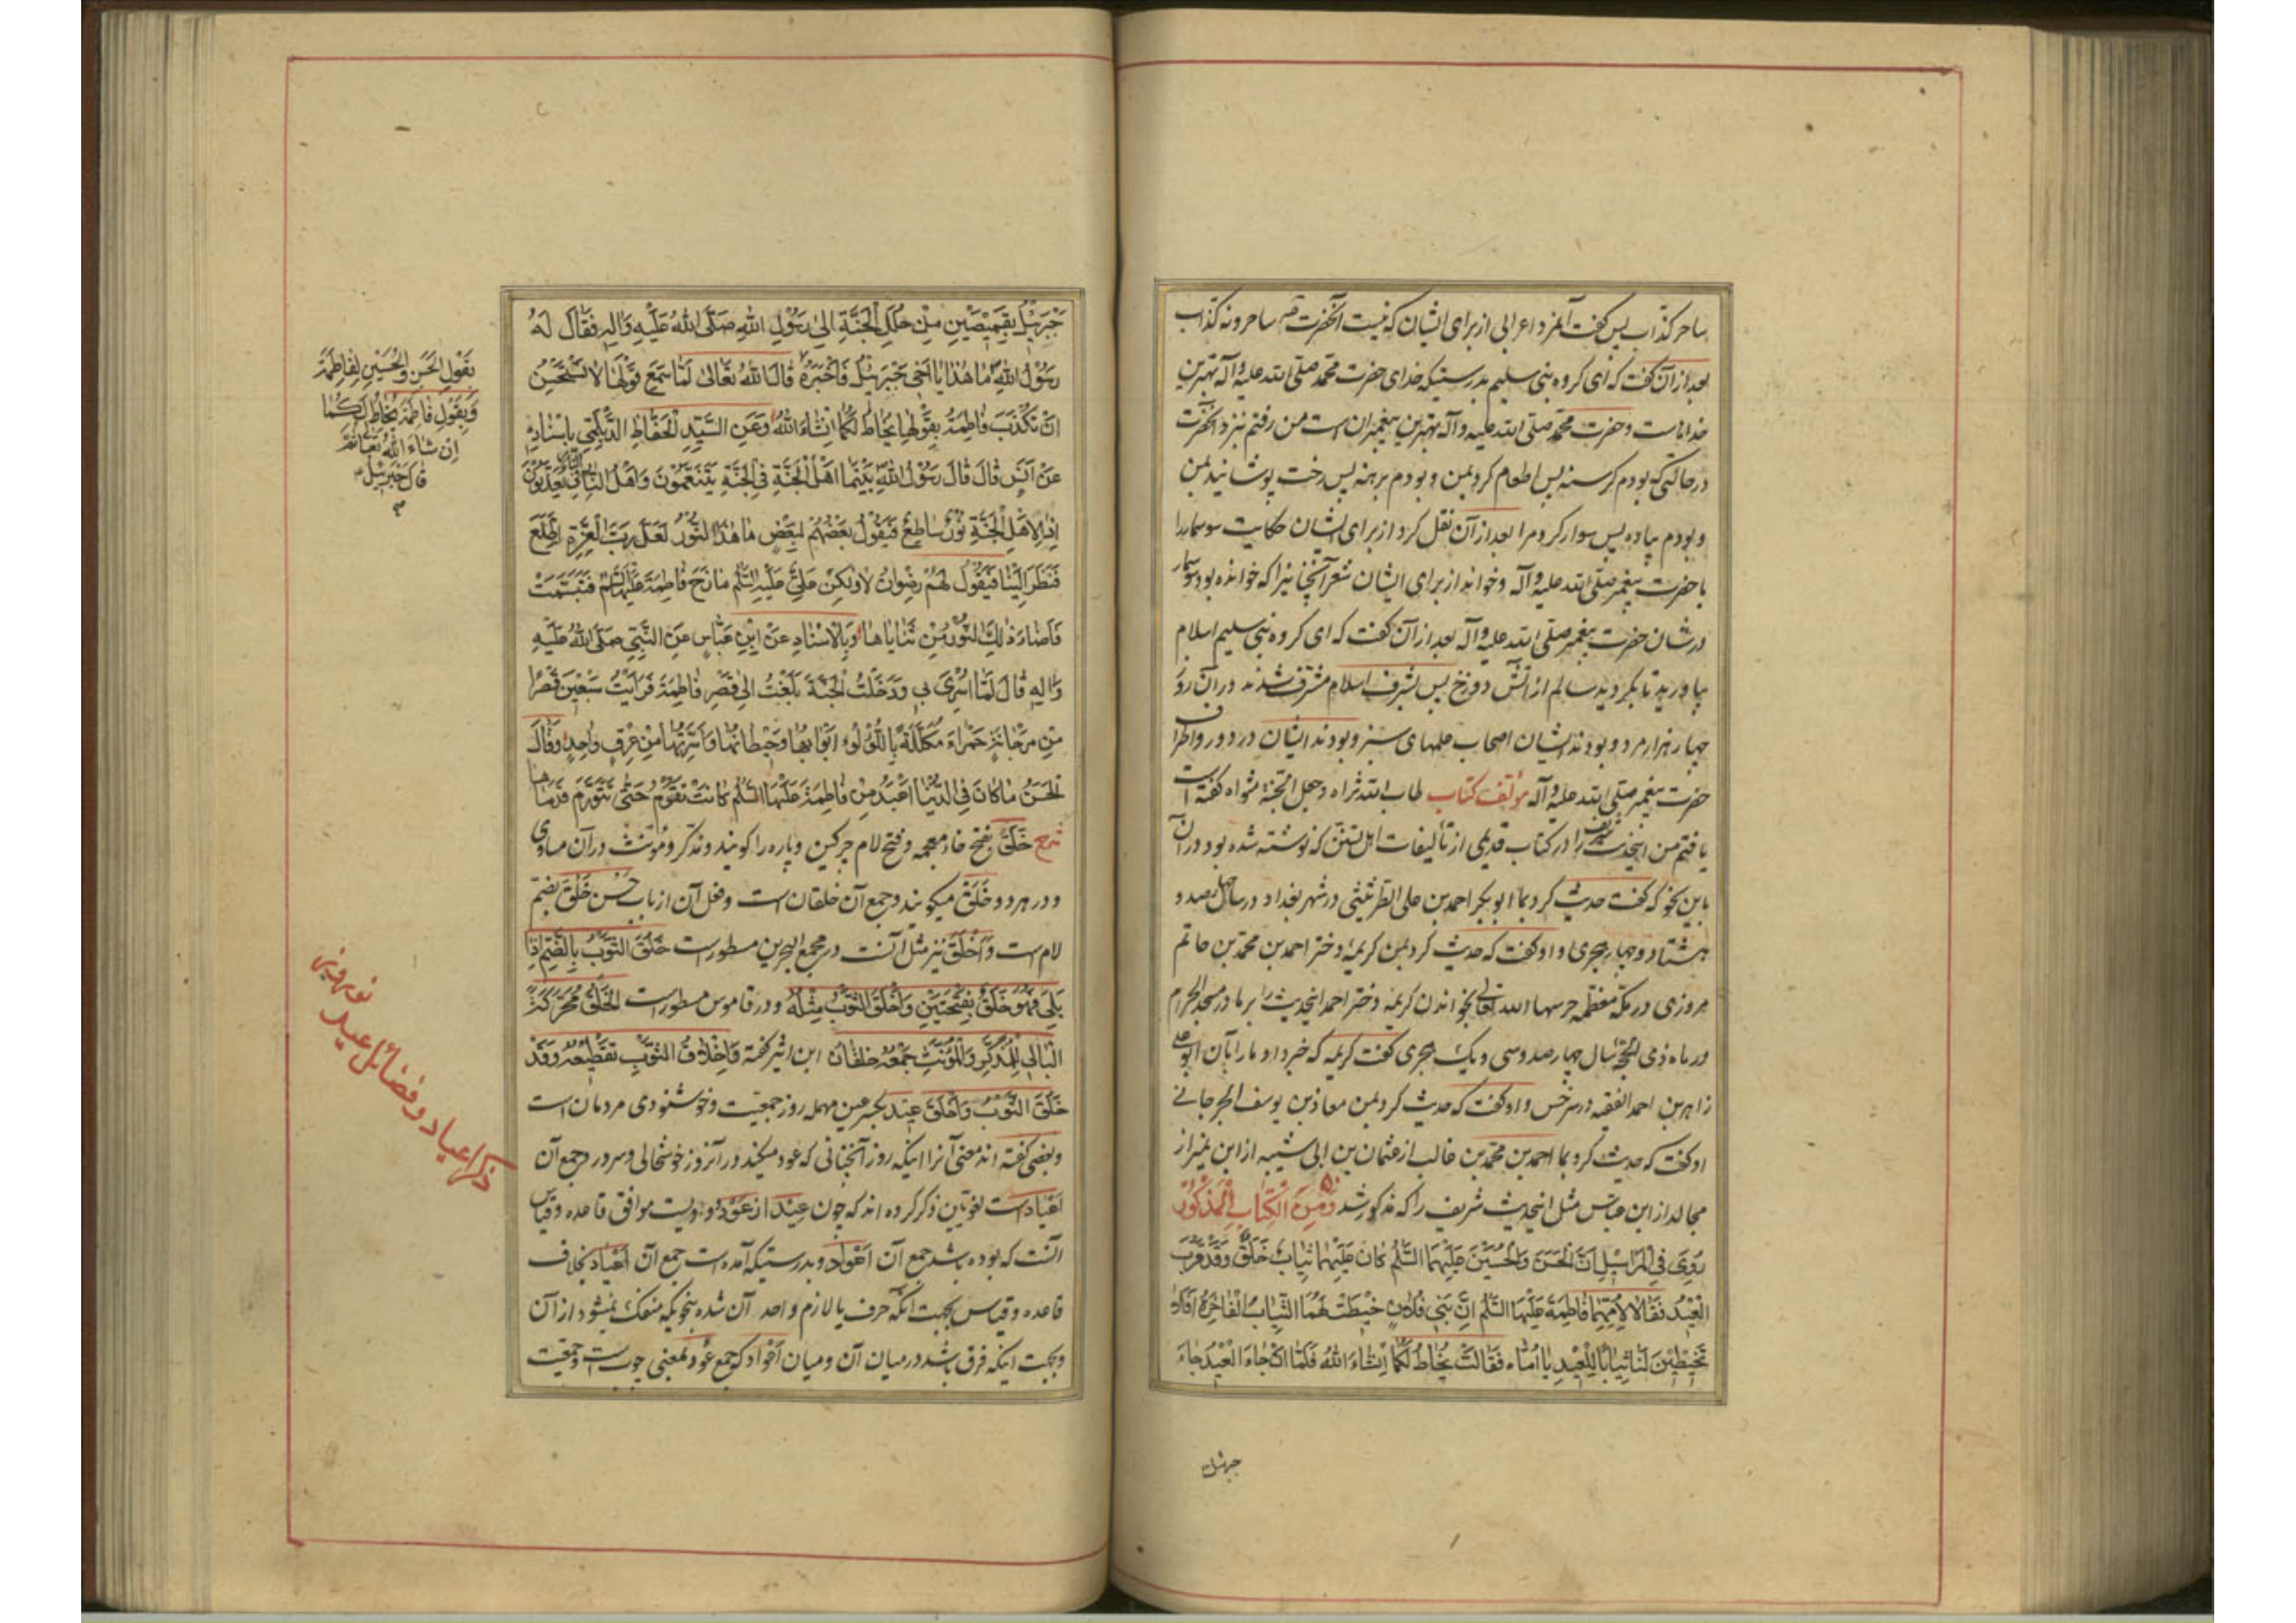 ساحر کذاب پس گفت آنمرد اعرابی از برای ایشان که نیست آنحضرت ساحر و نه کذاب
بعد از آن گفت که ای گروه بنی سلیم بدرستیکه خدای حضرت محمد صلی الله علیه و آله بهترین
خداهاست و حضرت محمد صلی الله علیه و آله بهترین پیغمبران است من رفتم نزد آنحضرت
در حالتی که بودم گرسنه پس اطعام کرد بمن و بودم برهنه پس رخت پوشانید بمن
و بودم پیاده پس سوار کرد مرا بعد از آن نقل کرد از برای ایشان حکایت سوسمار را
با حضرت پیغمبر صلی الله علیه و آله و خواند از برای ایشان شعر آنچنانیرا که خوانده بود سوسمار
در شان حضرت پیغمبر صلی الله علیه و آله بعد از آن گفت که ای گروه بنی سلیم اسلام
بیاورید تا بگردید سالم از آتش دوزخ پس بشرف اسلام مشرف شدند در آن روز
چهار هزار مرد و بودند ایشان اصحاب علمهای سبز و بودند ایشان در دور و اطراف
حضرت پیغمبر صلی الله علیه و آله مؤلف کتاب طاب الله ثراه و جعل الجنة مثواه گفته است
یافتم من اینحدیث شریف را در کتاب قدیمی از تألیفات اهل تسنن که نوشته شده بود در آن
باین نحو که گفت حدیث کرد بما ابو بکر احمد بن علی الطرثیثی در شهر بغداد در سال چهارصد و
هشتاد و چهار هجری و او گفت که حدیث کرد بمن کریمه دختر احمد بن محمد بن حاتم
مروزی در مکه معظمه حرسها الله تعالی بخواندن کریمه دختر احمد اینحدیث را بر ما در مسجد الحرام
در ماه ذی الحجه سال چهارصد و سی و یک هجری گفت کریمه که خبر داد ما را بآن ابو علی
زاهر بن احمد الفقیه در سرخس و او گفت که حدیث کرد بمن معاذ بن یوسف الجرجانی
او گفت که حدیث کرد بما احمد بن محمد بن غالب از عثمان بن ابی شیبه از ابن نمیر از
مجالد از ابن عباس مثل اینحدیث شریف را که مذکور شد وَمِنَ الْكِتَابِ الْمَذْكُورِ
رُوِيَ فِي الْمَرَاسِيلِ اَنَّ الْحَسَنَ وَالْحُسَيْنَ عَلَيْهِمَا السَّلَامُ كَانَ عَلَيْهِمَا ثِيَابٌ خَلَقٌ وَقَدْ قَرُبَ
الْعِيْدُ فَقَالَا لِاُمِّهِمَا فَاطِمَةَ عَلَيْهَا السَّلَامُ اِنَّ بَنِي فُلَانٍ خِيْطَتْ لَهُمَا الثِّيَابُ الْفَاخِرَةُ اَفَلَا
تَخِيْطِيْنَ لَنَا ثِيَابًا لِلْعِيْدِ يَا اُمَّاهْ فَقَالَتْ يُخَاطُ لَكُمَا اِنْشَاءَ اللّٰهُ فَلَمَّا اَنْ جَاءَ الْعِيْدُ جَاءَ
جبرئیل
جَبْرَئِيْلُ بِقَمِيْصَيْنِ مِنْ حُلَلِ الْجَنَّةِ اِلَى رَسُوْلِ اللّٰهِ صَلَّى اللّٰهُ عَلَيْهِ وَاٰلِهِ فَقَالَ لَهُ
رَسُوْلُ اللّٰهِ مَا هٰذَا يَا اَخِي جَبْرَئِيْلُ فَاَخْبَرَهُ قَالَ اللّٰهُ تَعَالٰى لَمَّا سَمِعَ قَوْلَهَا لَا نَسْتَحْسِنُ
اَنْ نُكَذِّبَ فَاطِمَةَ بِقَوْلِهَا يُخَاطُ لَكُمَا اِنْشَاءَ اللّٰهُ وَعَنِ السَّيِّدِ الْحُفَّاظِ الدَّيْلَمِيِّ بِاِسْنَادِهِ
عَنْ اَنَسٍ قَالَ قَالَ رَسُوْلُ اللّٰهِ بَيْنَمَا اَهْلُ الْجَنَّةِ فِي الْجَنَّةِ يَتَنَعَّمُوْنَ وَاَهْلُ النَّارِ فِي النَّارِ يُعَذَّبُوْنَ
اِذَا لِاَهْلِ الْجَنَّةِ نُوْرٌ سَاطِعٌ فَيَقُوْلُ بَعْضُهُمْ لِبَعْضٍ مَا هٰذَا النُّوْرُ لَعَلَّ رَبَّ الْعِزَّةِ اِطَّلَعَ
فَنَظَرَ اِلَيْنَا فَيَقُوْلُ لَهُمْ رِضْوَانُ لَا وَلٰكِنْ عَلِيٌّ عَلَيْهِ السَّلَامُ مَازَحَ فَاطِمَةَ عَلَيْهَا السَّلَامُ فَتَبَسَّمَتْ
فَاَضَاءَ ذٰلِكَ النُّوْرُ مِنْ ثَنَايَاهَا وَبِالْاِسْنَادِ عَنْ اِبْنِ عَبَّاسٍ عَنِ النَّبِيِّ صَلَّى اللّٰهُ عَلَيْهِ
وَاٰلِهِ قَالَ لَمَّا اُسْرِيَ بِي وَدَخَلْتُ الْجَنَّةَ بَلَغْتُ اِلَى قَصْرِ فَاطِمَةَ فَرَاَيْتُ سَبْعِيْنَ قَصْرًا
مِنْ مَرْجَانَةٍ حَمْرَاءَ مُكَلَّلَةً بِاللُّؤْلُؤِ اَبْوَابُهَا وَحِيْطَانُهَا وَاَسِرَّتُهَا مِنْ عِرْقٍ وَاحِدٍ وَقَالَ
الْحَسَنُ مَا كَانَ فِي الدُّنْيَا اَعْبَدُ مِنْ فَاطِمَةَ عَلَيْهَا السَّلَامُ كَانَتْ تَقُوْمُ حَتّٰى تَتَوَرَّمَ قَدَمَاهَا
شرح خَلَقٌ بفتح خاء معجمه و فتح لام چرکین و پاره را گویند و مذکر و مؤنث در آن مساوی
و در هر دو خَلَقٌ میگویند و جمع آن خلقان است و فعل آن از باب حَسُنَ خَلُقَ بضم
لام است و اَخْلَقَ نیز مثل آنست و در مجمع البحرین مسطور است خَلُقَ الثَّوْبُ بِالضَّمِّ اِذَا
بَلِيَ فَهُوَ خَلَقٌ بِفَتْحَتَيْنِ وَاَخْلَقَ الثَّوْبُ مِثْلُهُ و در قاموس مسطور است الخَلَقُ مُحَرَّكَةً
الْبَالِي لِلْمُذَكَّرِ وَالْمُؤَنَّثِ جَمْعُهُ خلقان ابن اثیر گفته وَاِخْلَاقُ الثَّوْبِ تَقْطِيْعُهُ وَقَدْ
خَلُقَ الثَّوْبُ وَاَخْلَقَ عِيْد بکسر عین مهمله روز جمعیت و خوشنودی مردمان است
و بعضی گفته‌اند معنی آنرا اینکه روز آنچنانی که عود میکند در آنروز خوشحالی و سرور و جمع آن
اَعْيَاد است لغویین ذکر کرده‌اند که چون عِيْد از عَوْد واویست موافق قاعده و قیاس
آنست که بوده باشد جمع آن اَعْوَاد و بدرستیکه آمده است جمع آن اَعْيَاد بخلاف
قاعده و قیاس بجهت آنکه حرف یا لازم واحد آن شده بنحویکه منفک نمیشود از آن
و بجهت اینکه فرق باشد در میان آن و میان اَعْوَاد که جمع عُود بمعنی چوب است و جمعیت
بِقَوْلِ الْحَسَنِ وَالْحُسَيْنِ لِفَاطِمَةَ
وَبِقَوْلِ فَاطِمَةَ يُخَاطُ لَكُمَا
اِنْ شَاءَ اللّٰهُ تَعَالٰى ثُمَّ
قَالَ جَبْرَئِيْلُ
ذکر اعیاد و فضائل عید
نوروز